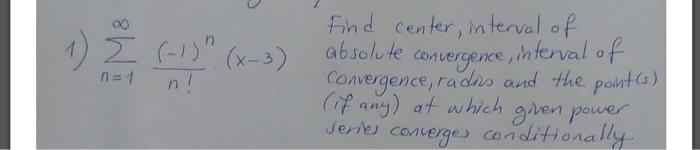 1) ∞ Σ n=1 (-1)^n / n! · (x-3)
Find center, interval of
absolute convergence, interval of
convergence, radius and the point(s)
(if any) at which given power
series converges conditionally